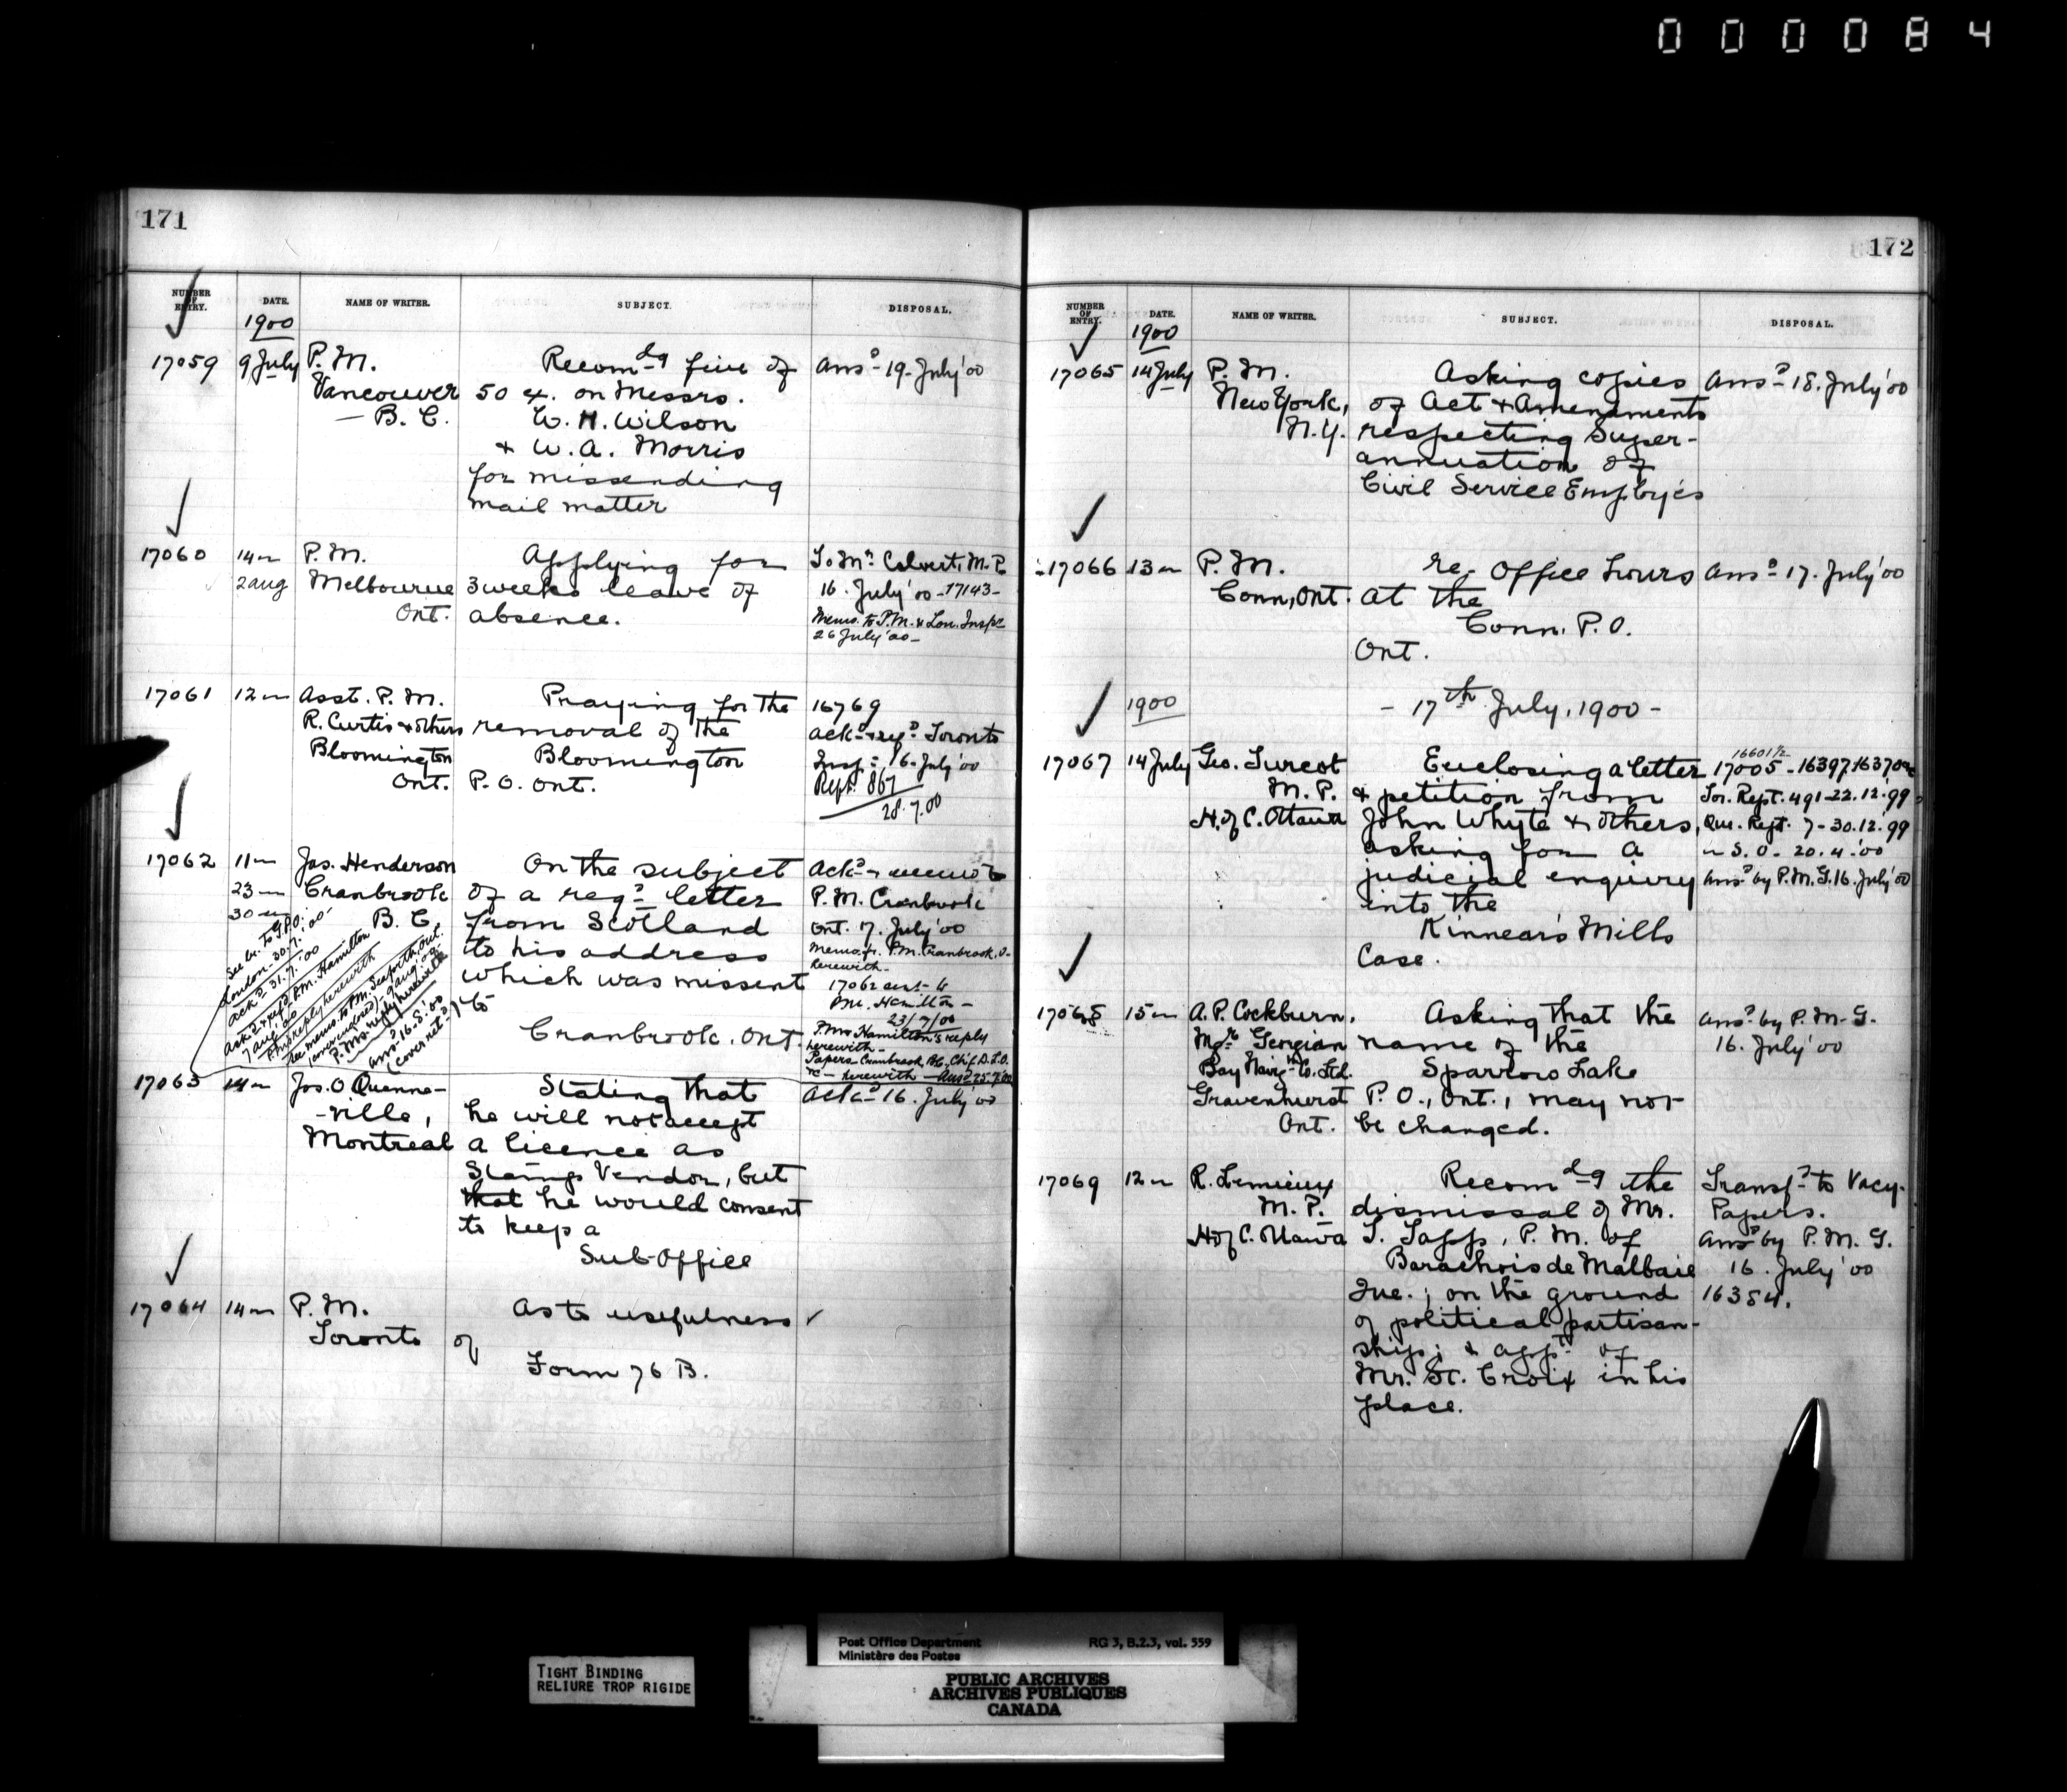 000084
171
NUMBER OF ENTRY. DATE. NAME OF WRITER. SUBJECT. DISPOSAL.
1900
17059 9 July P. M. Recomdg fine of Ansd 19. July '00
Vancouver 50 c. on Messrs.
— B. C. W. H. Wilson
& W. A. Morris
for missending
mail matter
17060 14 " P. M. Applying for To Mr. Calvert, M. P.
2 aug Melbourne 3 weeks leave of 16. July '00 - 17143 -
Ont. absence. Memo. to P.M. & Lon. Inspr
26 July '00 -
17061 12 " Asst. P. M. Praying for the 16769
R. Curtis & others removal of the Ackd & refd Toronto
Bloomington Bloomington Insp. 16. July '00
Ont. P. O. Ont. Rept. 867
28.7.00
17062 11 " Jas. Henderson On the subject Ackd & memo to
23 " Cranbrook of a regd letter P. M. Cranbrook
30 " B. C. from Scotland Ont. 17. July '00
to his address Memo. fr. P.M. Cranbrook, O-
herewith -
which was missent 17062 sent to
to P.M. Hamilton -
23/7/00
Cranbrook. Ont. P.M. Hamilton's reply
herewith -
Papers Cranbrook, BC, Chif. D.L.O.
&c - herewith - Ansd 25.7.00
See la. to G.P.O.
London - 30.7.'00
Ackd 31.7.'00
Askd & refd P.M. Hamilton
7 aug '00
P.M's reply herewith
See memo. to P.M. Seaforth, Ont.
P. M's reply herewith
Ansd 16.8.'00
(cover retd)
17063 14 " Jos. O Quenne- Stating that Ackd 16. July '00
-ville, he will not accept
Montreal a licence as
Stamp Vendor, but
that he would consent
to keep a
Sub-Office
17064 14 " P. M. As to usefulness ✓
Toronto of
Form 76 B.
172
NUMBER OF ENTRY. DATE. NAME OF WRITER. SUBJECT. DISPOSAL.
1900
17065 14 July P. M. Asking copies Ansd 18. July '00
New York, of Act & Amendments
N. Y. respecting Super-
annuation of
Civil Service Employés
17066 13 " P. M. re- Office hours Ansd 17. July '00
Conn, Ont. at the
Conn. P. O.
Ont.
1900 - 17th July, 1900 -
16601½
17067 14 July Geo. Turcot Enclosing a letter 17005 - 16397, 16370
M. P. & petition from Tor. Rept. 491 - 22.12.'99
H. of C. Ottawa John Whyte & others, Que. Rept. 7 - 30.12.'99
asking for a " S. O - 20.4.'00
judicial enquiry Ansd by P. M. G. 16. July '00
into the
Kinnear's Mills
Case.
17068 15 " A. P. Cockburn, Asking that the Ansd by P. M. G.
Mgr. Georgian name of the 16. July '00
Bay Navign Co. Ltd. Sparrow Lake
Gravenhurst P. O., Ont., may not
Ont. be changed.
17069 12 " R. Lemieux Recomdg the Transfd to Vacy.
M. P. dismissal of Mr. Papers.
H of C. Ottawa T. Tapp, P. M. of Ansd by P. M. G.
Barachois de Malbaie 16. July '00
Que.; on the ground 16384.
of political partisan-
ship; & appt of
Mr. St. Croix in his
place.
Post Office Department RG 3, B.2.3, vol. 559
Ministère des Postes
TIGHT BINDING
RELIURE TROP RIGIDE
PUBLIC ARCHIVES
ARCHIVES PUBLIQUES
CANADA